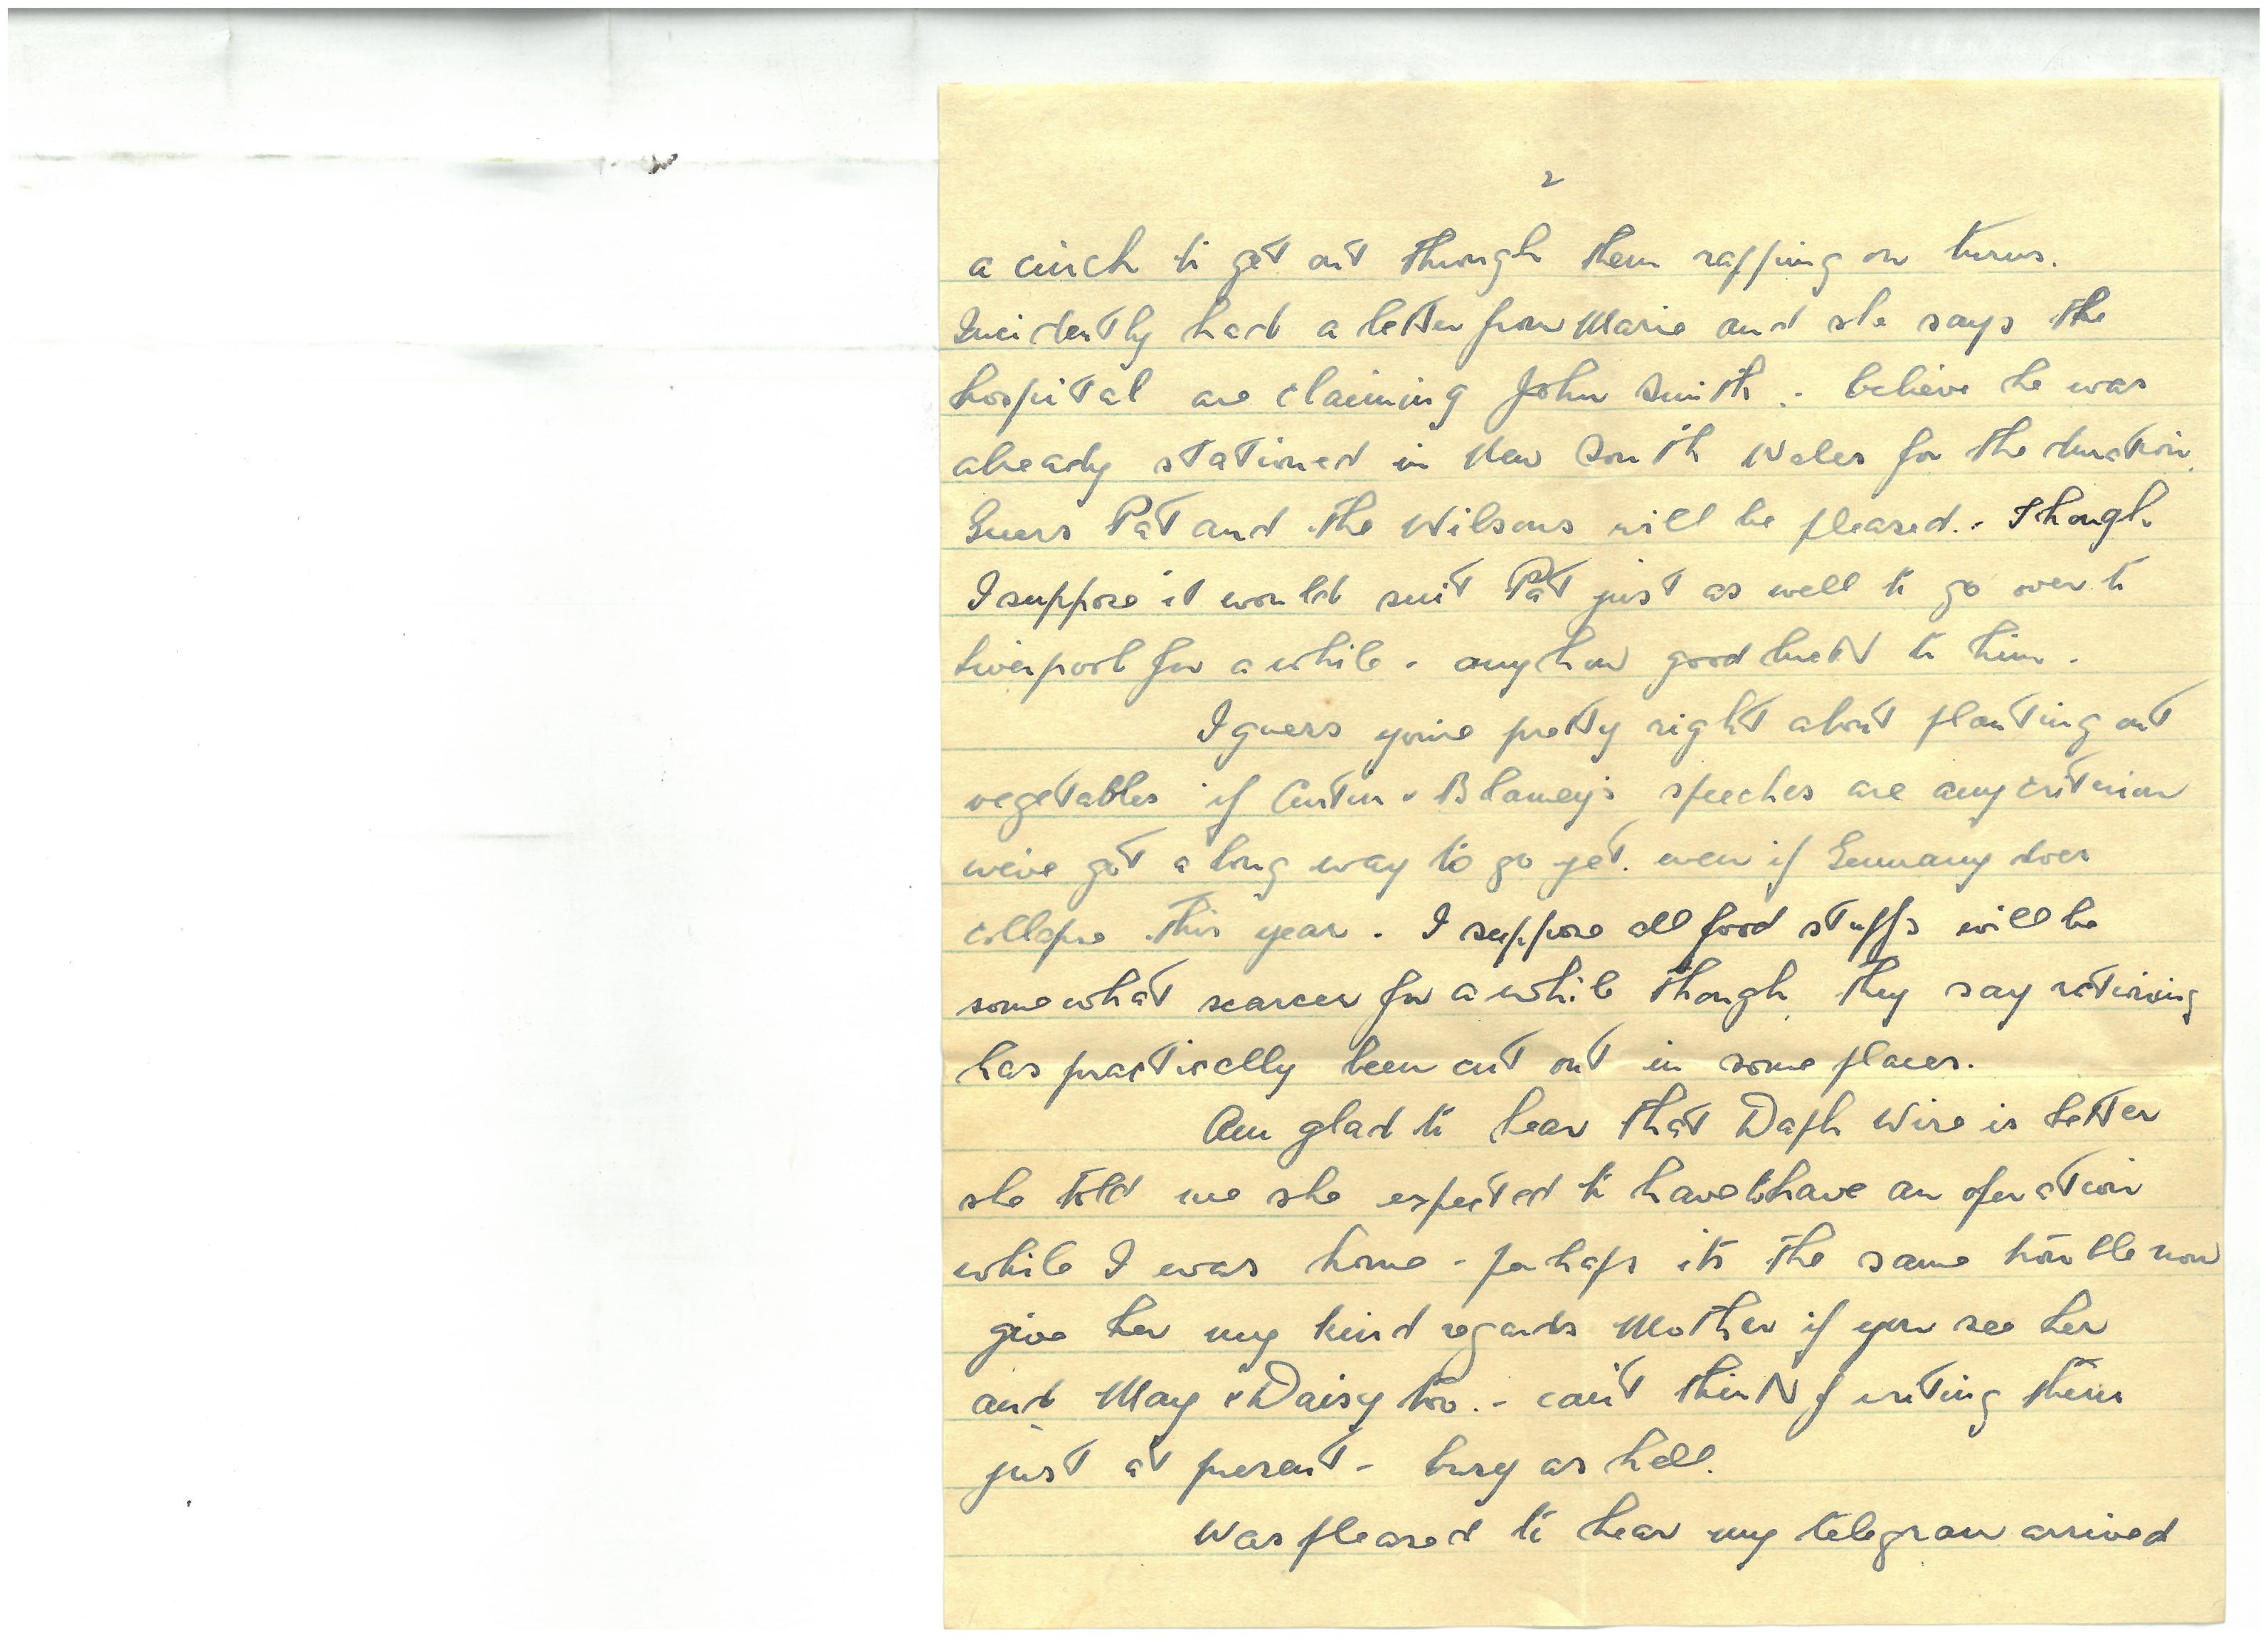 2
a cinch to get out through them rapping on turns.
Incidently had a letter from Marie and she says the
hospital are claiming John Smith.- believe he was
already stationed in New South Wales for the duration.
Guess Pat and the Wilsons will be pleased.- Though
I suppose it would suit Pat just as well to go over to
Liverpool for a while - anyhow good luck to him.
I guess you're pretty right about planting out
vegetables if Curtin & Blamey's speeches are any criterion
we've got a long way to go yet. even if Germany does
collapse this year. I suppose all food stuffs will be
somewhat scarcer for a while though, they say rationing
has practically been cut out in some places.
Am glad to hear that Daph Wire is better
she told me she expected to have to have an operation
while I was home - perhaps its the same trouble now
give her my kind regards Mother if you see her
and May & Daisy too.- can't think of writing them
just at present - busy as hell.
Was pleased to hear my telegram arrived